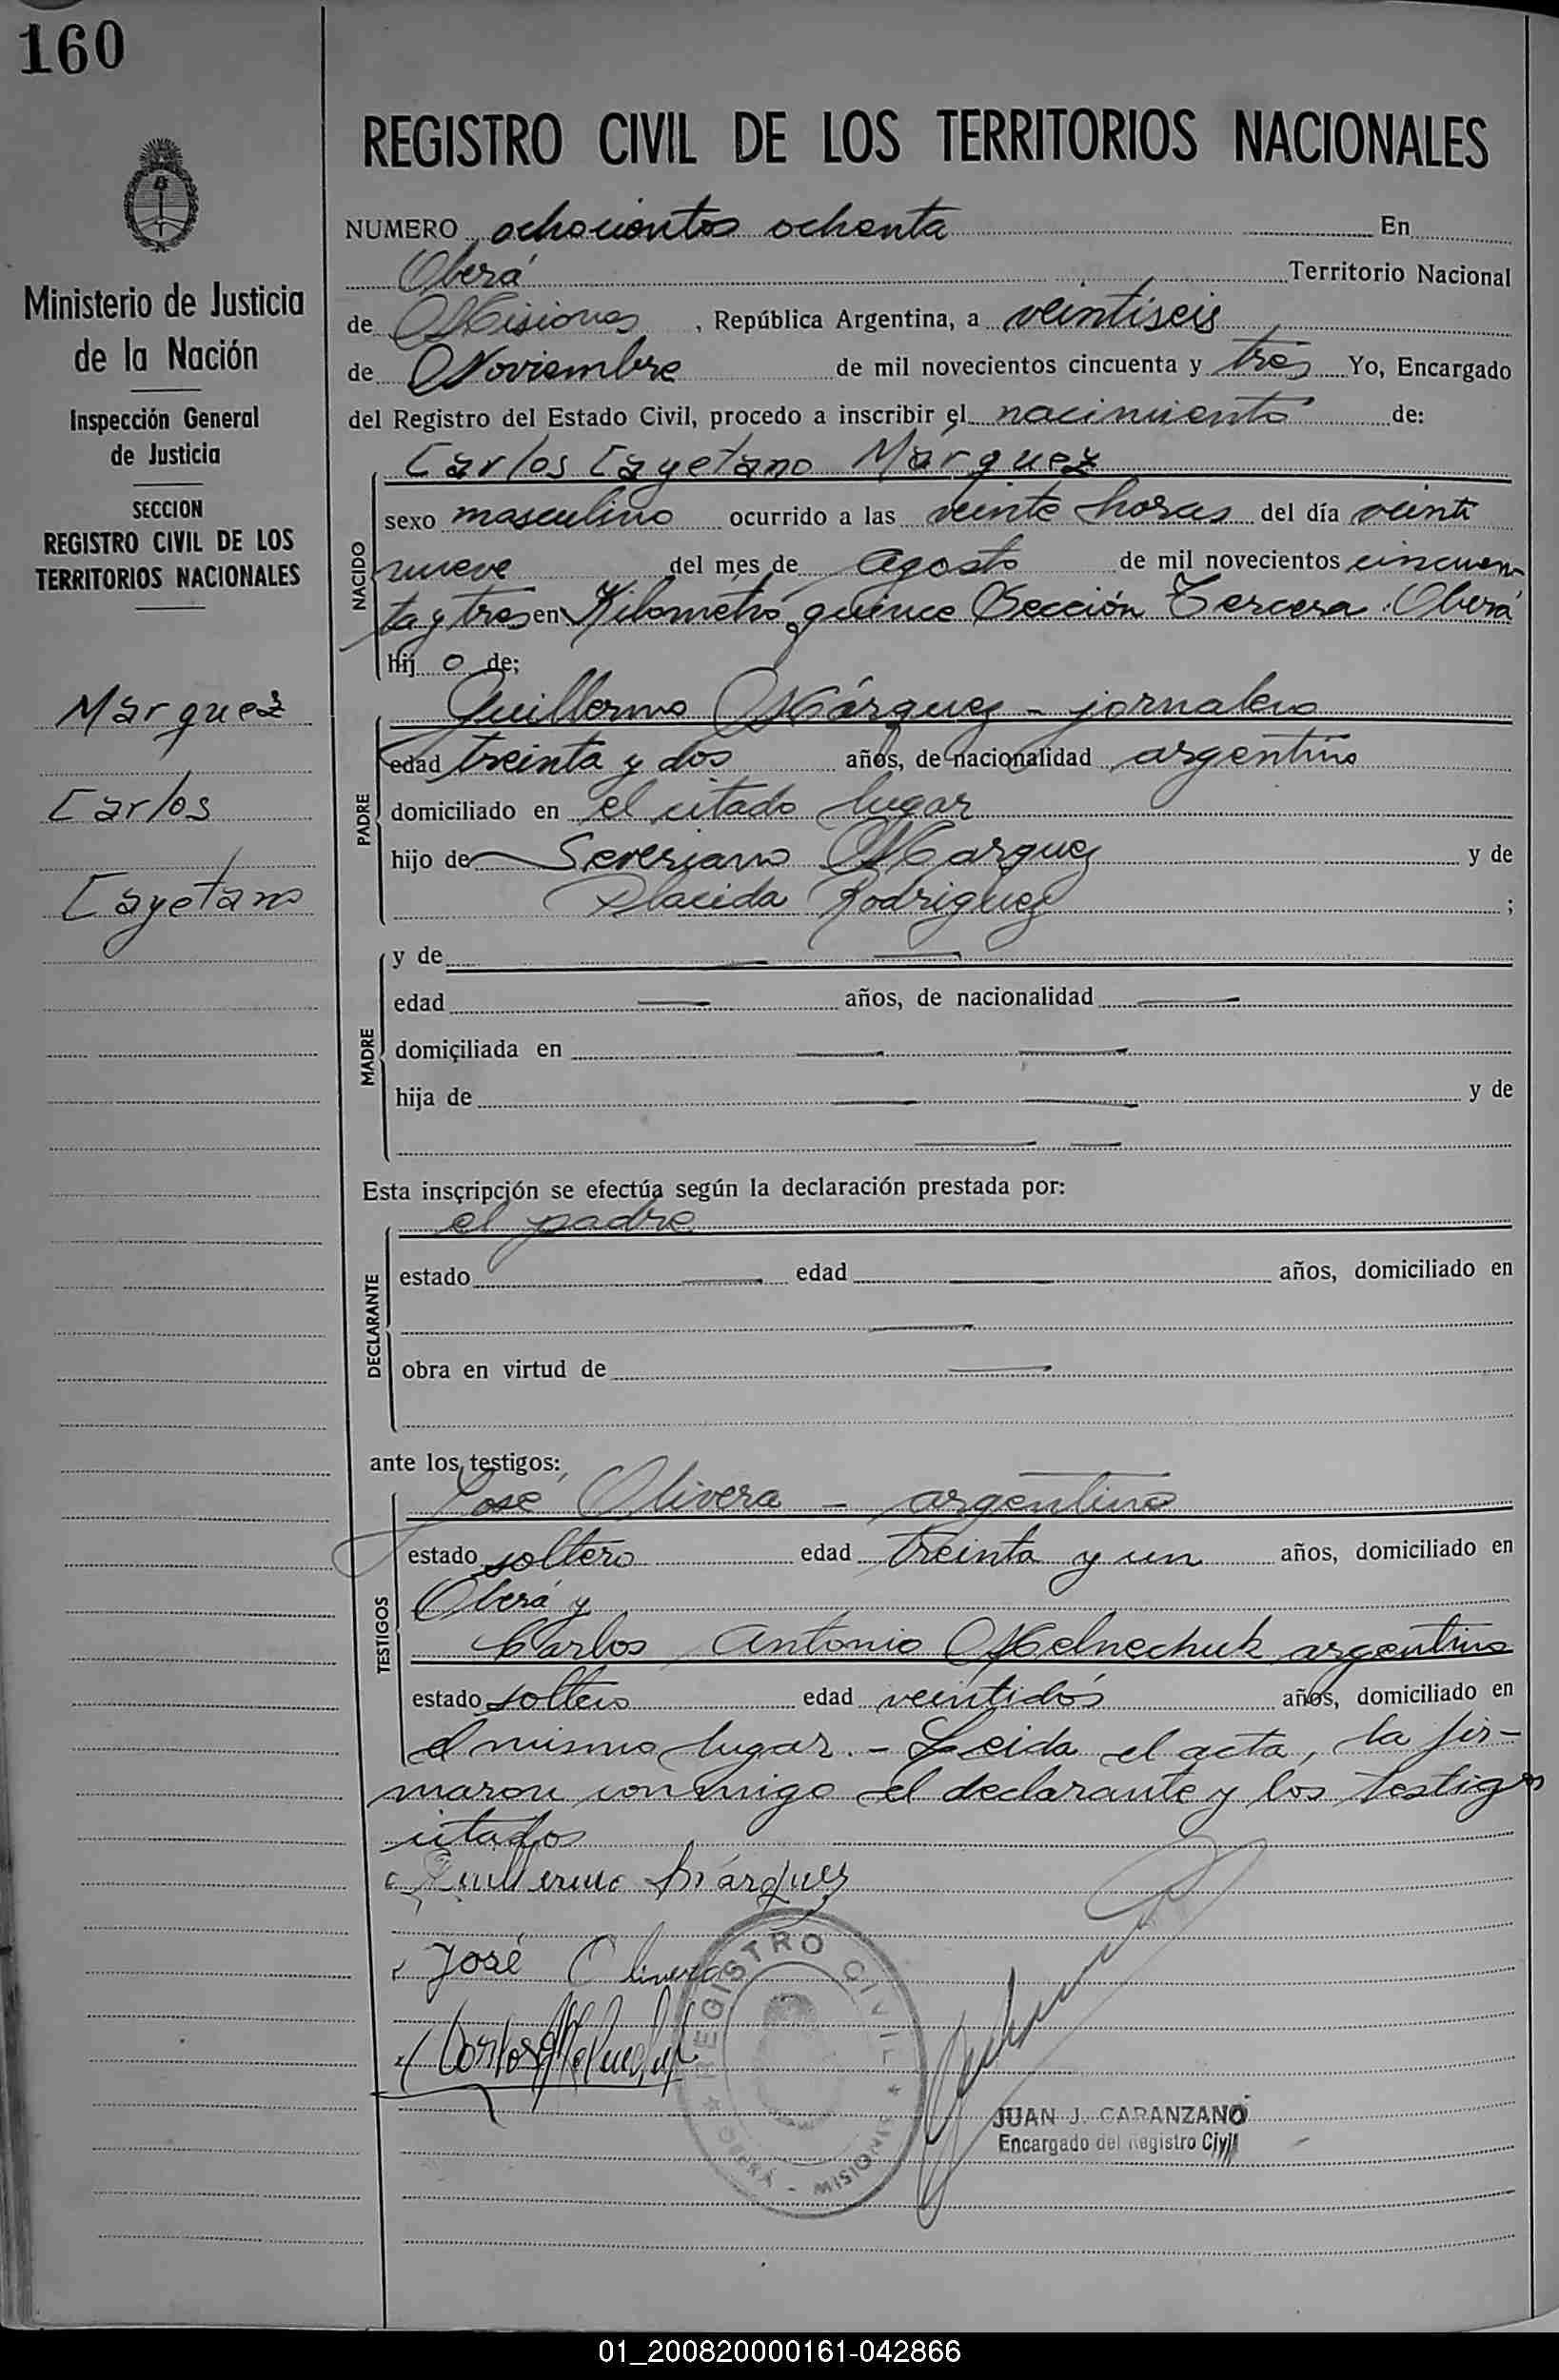 160
REGISTRO CIVIL DE LOS TERRITORIOS NACIONALES
Ministerio de Justicia
de la Nación
Inspección General
de Justicia
SECCION
REGISTRO CIVIL DE LOS
TERRITORIOS NACIONALES
Marquez
Carlos
Cayetano
NUMERO ochocientos ochenta En
Oberá Territorio Nacional
de Misiones, República Argentina, a veintiseis
de Noviembre de mil novecientos cincuenta y tres Yo, Encargado
del Registro del Estado Civil, procedo a inscribir el nacimiento de:
Carlos Cayetano Marquez
NACIDO
sexo masculino ocurrido a las veinte horas del día veinti
nueve del mes de agosto de mil novecientos cincuen
ta y tres en Kilometro quince Sección Tercera Oberá
hijo de:
Guillermo Márquez - jornalero
PADRE
edad treinta y dos años, de nacionalidad argentino
domiciliado en el citado lugar
hijo de Severiano Marquez y de
Placida Rodriguez ;
MADRE
y de
edad años, de nacionalidad
domiciliada en
hija de y de
Esta inscripción se efectúa según la declaración prestada por:
el padre
DECLARANTE
estado edad años, domiciliado en
obra en virtud de
ante los testigos:
José Olivera - argentino
TESTIGOS
estado soltero edad treinta y un años, domiciliado en
Oberá y
Carlos Antonio Melnechuk argentino
estado soltero edad veintidós años, domiciliado en
el mismo lugar. - Leida el acta, la fir-
maron conmigo el declarante y los testigos
citados
Guillermo Márquez
José Olivera
Carlos A Melnechuk
REGISTRO CIVIL
OBERÁ - MISIONES
JUAN J. CARANZANO
Encargado del Registro Civil
01_200820000161-042866